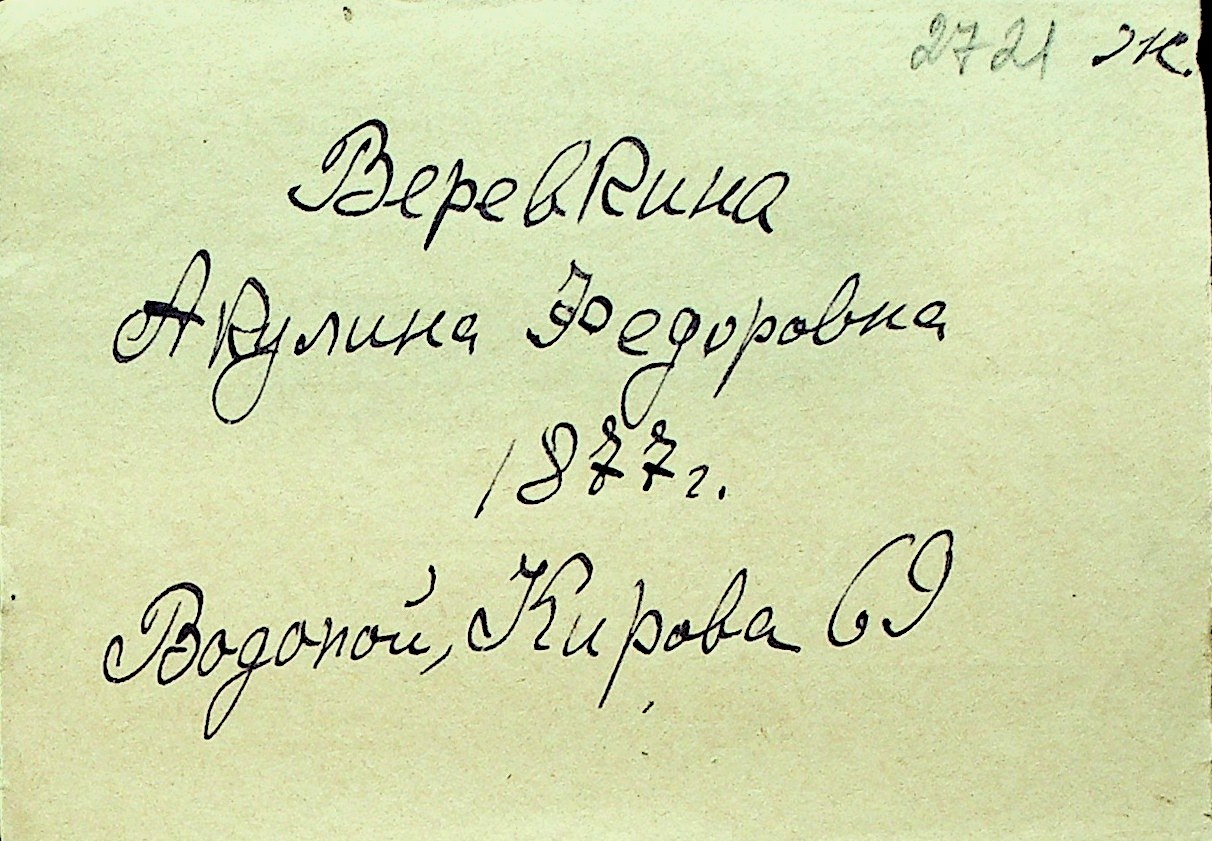 2721 ж.
Веревкина
Акулина Федоровна
1877г.
Водопой, Кирова 69